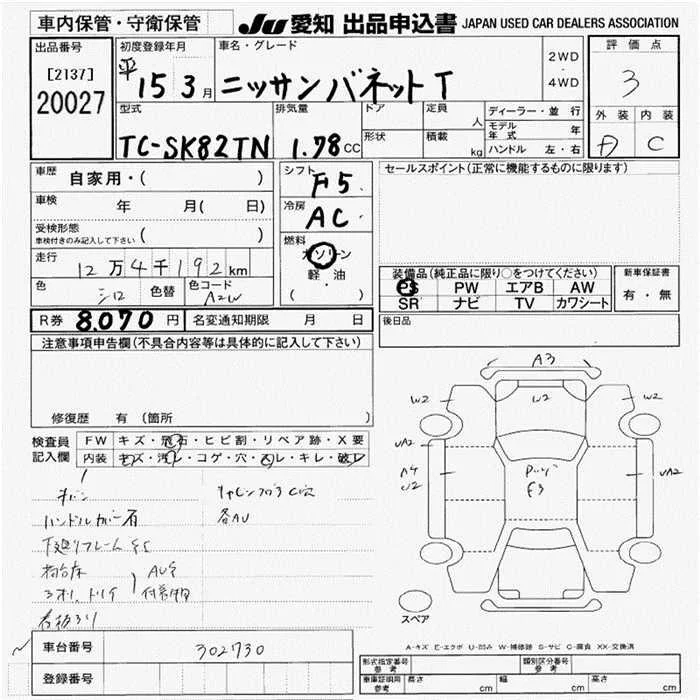 車内保管・守衛保管
JU 愛知 出品申込書 JAPAN USED CAR DEALERS ASSOCIATION
出品番号 初度登録年月 車名・グレード 2WD・4WD 評価点
[2137] 平 15 3月 ニッサンバネットT 3
20027
型式 排気量 ドア 定員 人 ディーラー・並行 外装 内装
モデル年式 年
TC-SK82TN 1.78cc 形状 積載 kg ハンドル 左・右 D C
車歴 自家用・( ) シフト F5 セールスポイント(正常に機能するものに限ります)
車検 年 月( 日) 冷房 AC
受検形態 ( )
車検付きのみ記入して下さい
燃料 ガソリン
走行 12万4千192km 軽・油
装備品(純正品に限り○をつけてください) 新車保証書
色 シロ 色替 色コード ( )
PS PW エアB AW 有・無
SR ナビ TV カワシート
R券 8,070円 名変通知期限 月 日 後日品
注意事項申告欄(不具合内容等は具体的に記入して下さい)
修復歴 有(箇所 )
A3
W2 W2 W2
UA2
A4
U2 UA2
F3
検査員 FW キズ・飛石・ヒビ割・リペア跡・X要
記入欄 内装 キズ・汚レ・コゲ・穴・スレ・キレ・破レ
ハンドルカバー有 各AU
スペア
車台番号 302730
A-キズ E-エクボ U-凹み W-補修跡 S-サビ C-腐食 XX-交換済
登録番号
形式指定番号 参考 類別区分番号 参考
車庫証明用 参考 長さ cm 幅 cm 高さ cm